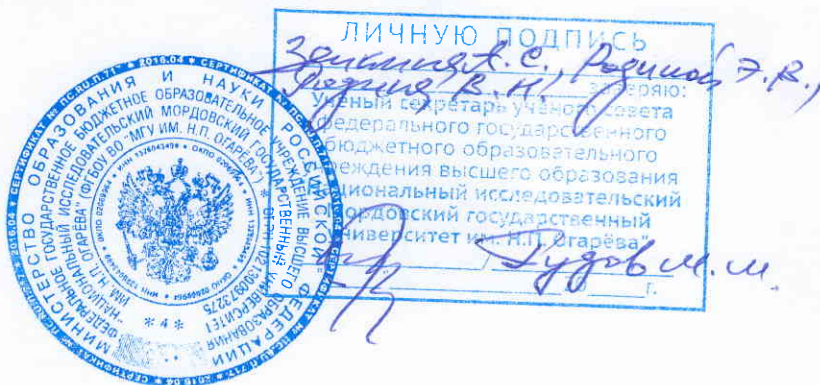 ЛИЧНУЮ ПОДПИСЬ
А.С., Родиной Э.В.,
В.Н. заверяю:
Учёный секретарь учёного совета
федерального государственного
бюджетного образовательного
учреждения высшего образования
"Национальный исследовательский
Мордовский государственный
университет им. Н.П. Огарёва"
/ Гудов М.М.
г.
МИНИСТЕРСТВО ОБРАЗОВАНИЯ И НАУКИ РОССИЙСКОЙ ФЕДЕРАЦИИ
ФЕДЕРАЛЬНОЕ ГОСУДАРСТВЕННОЕ БЮДЖЕТНОЕ ОБРАЗОВАТЕЛЬНОЕ УЧРЕЖДЕНИЕ ВЫСШЕГО ОБРАЗОВАНИЯ
"НАЦИОНАЛЬНЫЙ ИССЛЕДОВАТЕЛЬСКИЙ МОРДОВСКИЙ ГОСУДАРСТВЕННЫЙ УНИВЕРСИТЕТ
ИМ. Н.П. ОГАРЁВА" (ФГБОУ ВО "МГУ ИМ. Н.П. ОГАРЁВА")
* 4 *